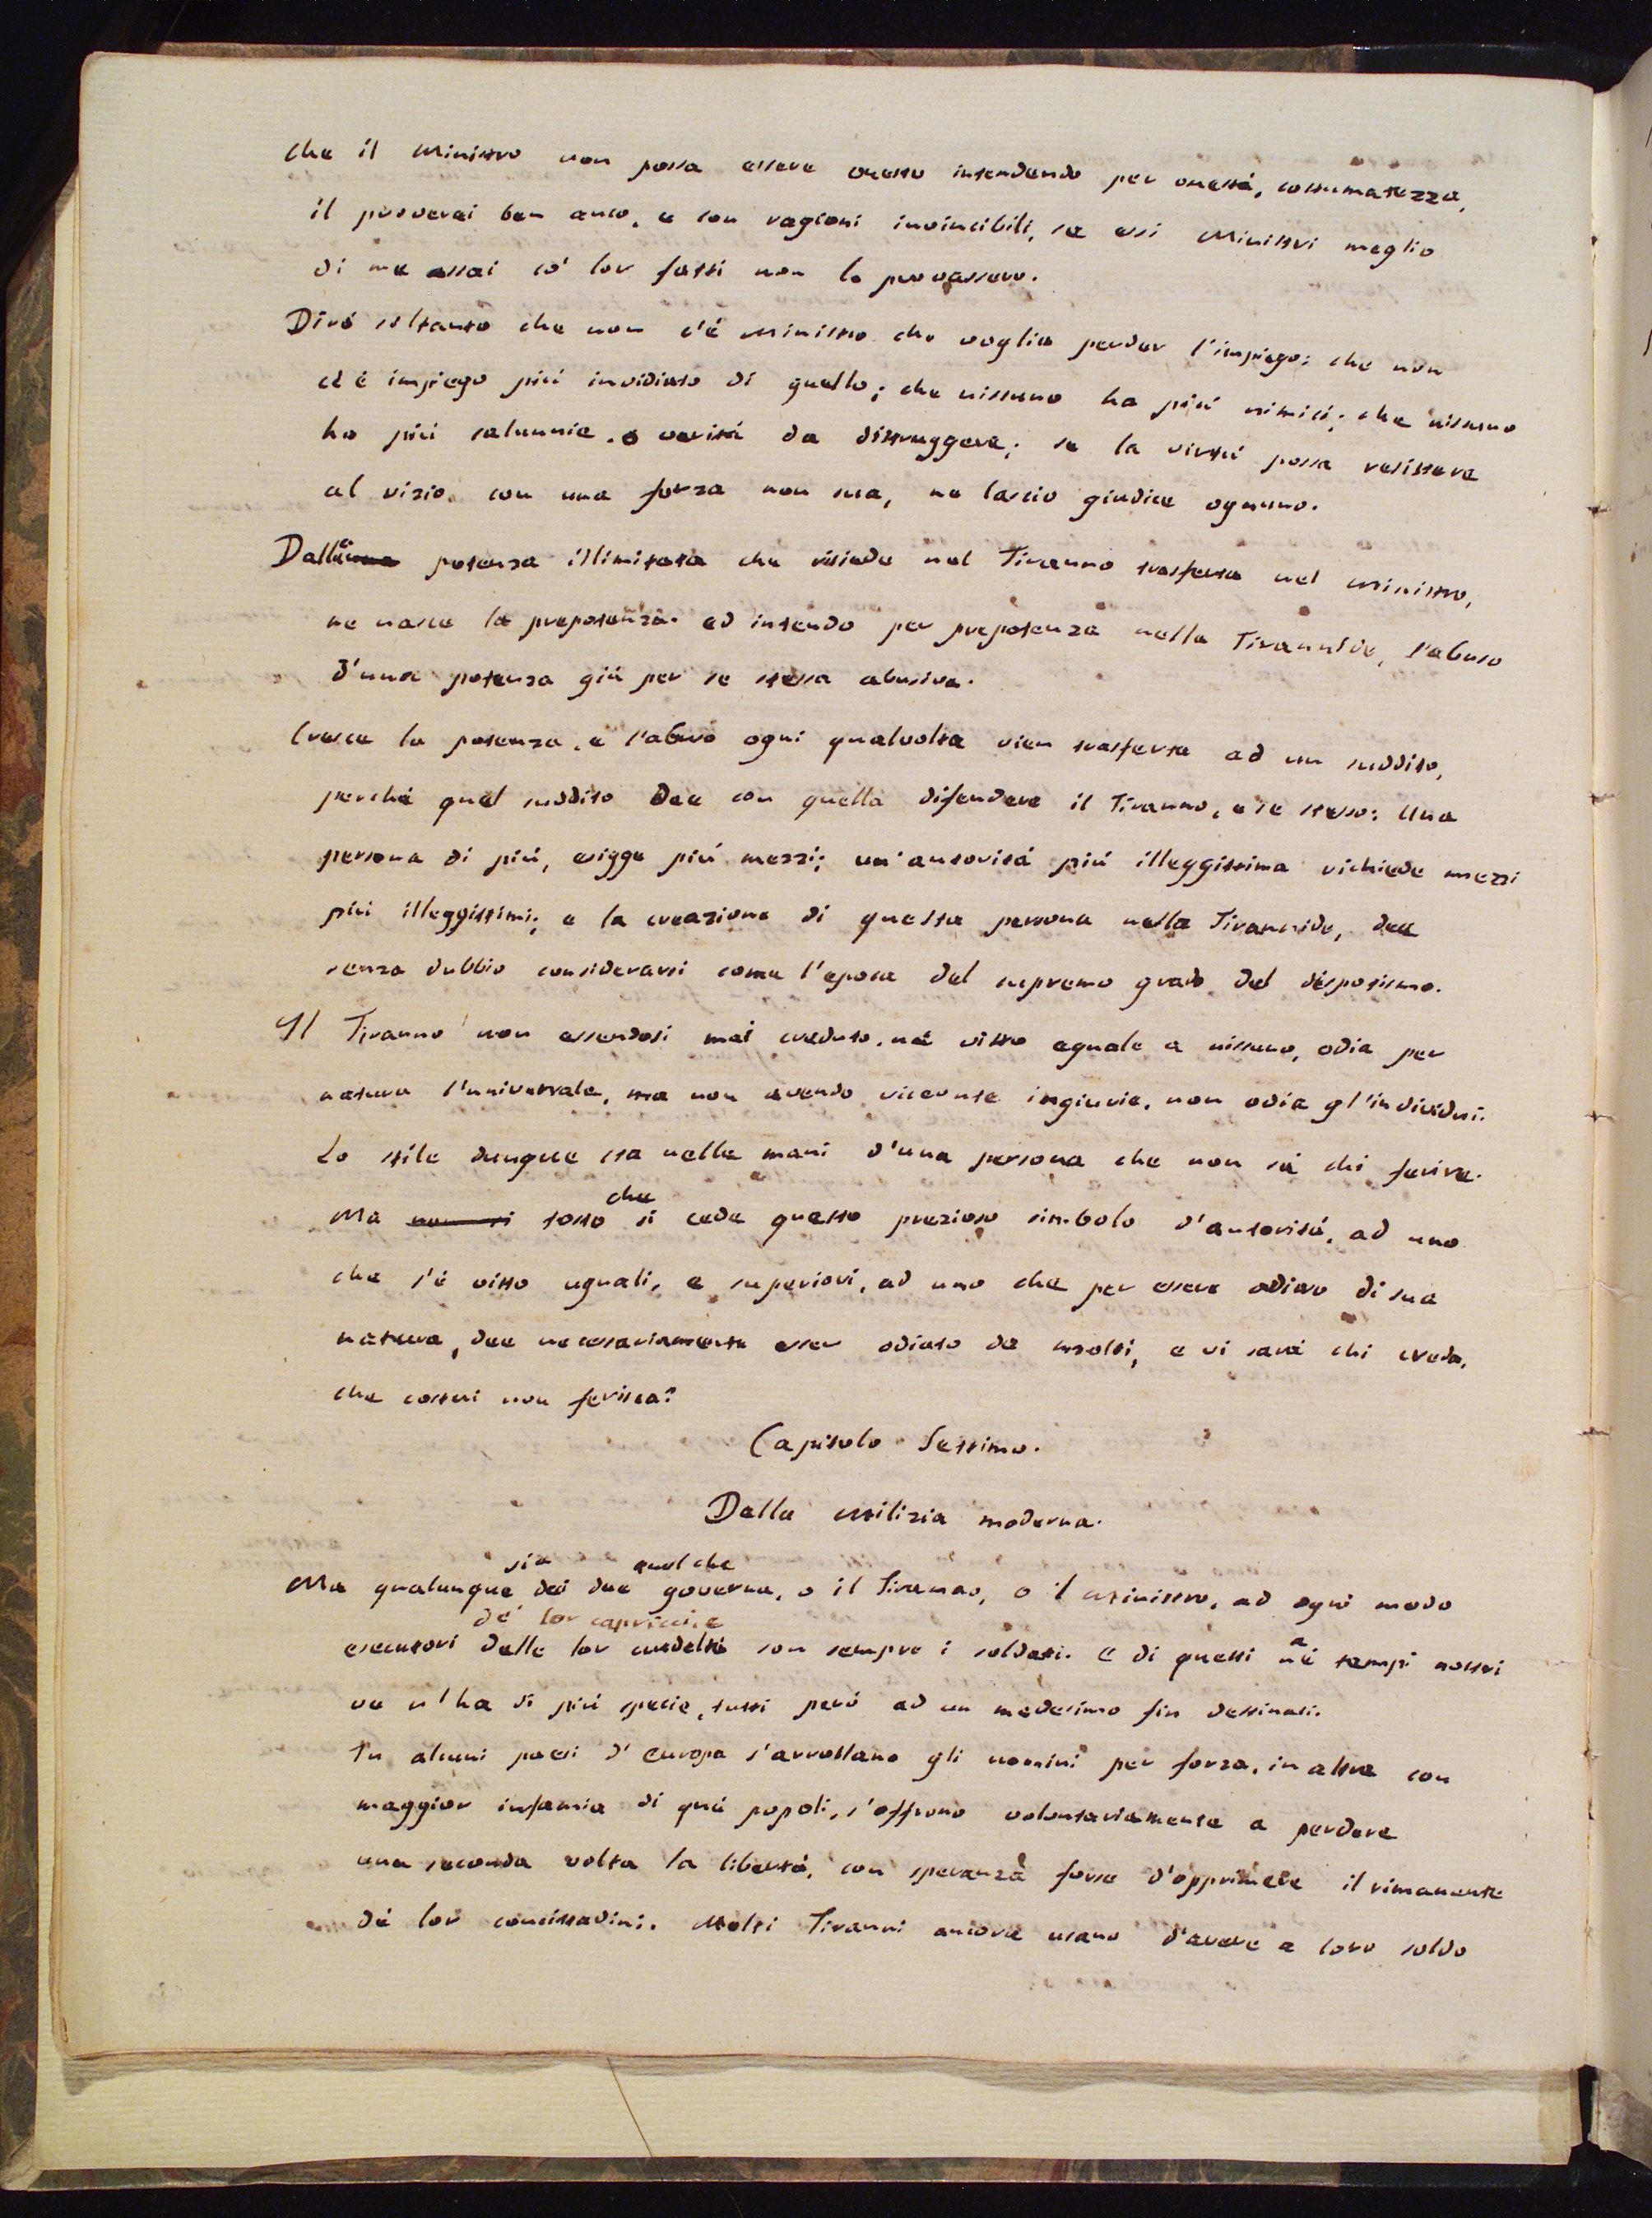 che il Ministro non possa essere onesto intendendo per onestà, costumatezza,
il proverei ben anco, e con ragioni invincibili, se essi Ministri meglio
di me assai co' lor fatti non lo provassero.
Dirò soltanto che non c'è Ministro che voglia perder l'impiego; che non
ci è impiego più invidiato di quello; che nissuno ha più nimici; che nissuno
ha più calunnie, o verità da distruggere; se la virtù possa resistere
al vizio con una forza non sua, ne lascio giudice ognuno.
Dalla potenza illimitata che risiede nel Tiranno trasferta nel Ministro,
ne nasce la prepotenza. ed intendo per prepotenza nella Tirannide, l'abuso
d'una potenza già per se stessa abusiva.
Cresce la potenza, e l'abuso ogni qualvolta vien trasferta ad un suddito,
perchè quel suddito dee con quella difendere il Tiranno, e se stesso: Una
persona di più, esigge più mezzi; un'autorità più illeggittima richiede mezzi
più illeggittimi; e la creazione di questa persona nella Tirannide, dee
senza dubbio considerarsi come l'epoca del supremo grado del dispotismo.
Il Tiranno non essendosi mai creduto, nè visto eguale a nissuno, odia per
natura l'universale, ma non avendo ricevute ingiurie, non odia gl'individui.
Lo stile dunque sta nelle mani d'una persona che non sà chi ferire.
Ma non si tosto che si cede questo prezioso simbolo d'autorità, ad uno
che s'è visto uguali, e superiori, ad uno che per essere odioso di sua
natura, dee necessariamente esser odiato da molti, e vi sarà chi creda,
che costui non ferisca?
Capitolo Settimo.
Della Milizia moderna.
Ma qualunque sia dei due quel che governa, o il Tiranno, o il Ministro, ad ogni modo
de' lor capricci, e
esecutori delle lor crudeltà son sempre i soldati. E di questi a nè tempi nostri
ve n'ha di più specie, tutti però ad un medesimo fin destinati.
In alcuni paesi d'Europa s'arrollano gli uomini per forza, in altre con
maggior infamia di què popoli, s'offrono volontariamente a perdere
una seconda volta la libertà, con speranza forse d'opprimere il rimanente
dè lor concittadini. Molti Tiranni ancora usano d'avere a loro soldo